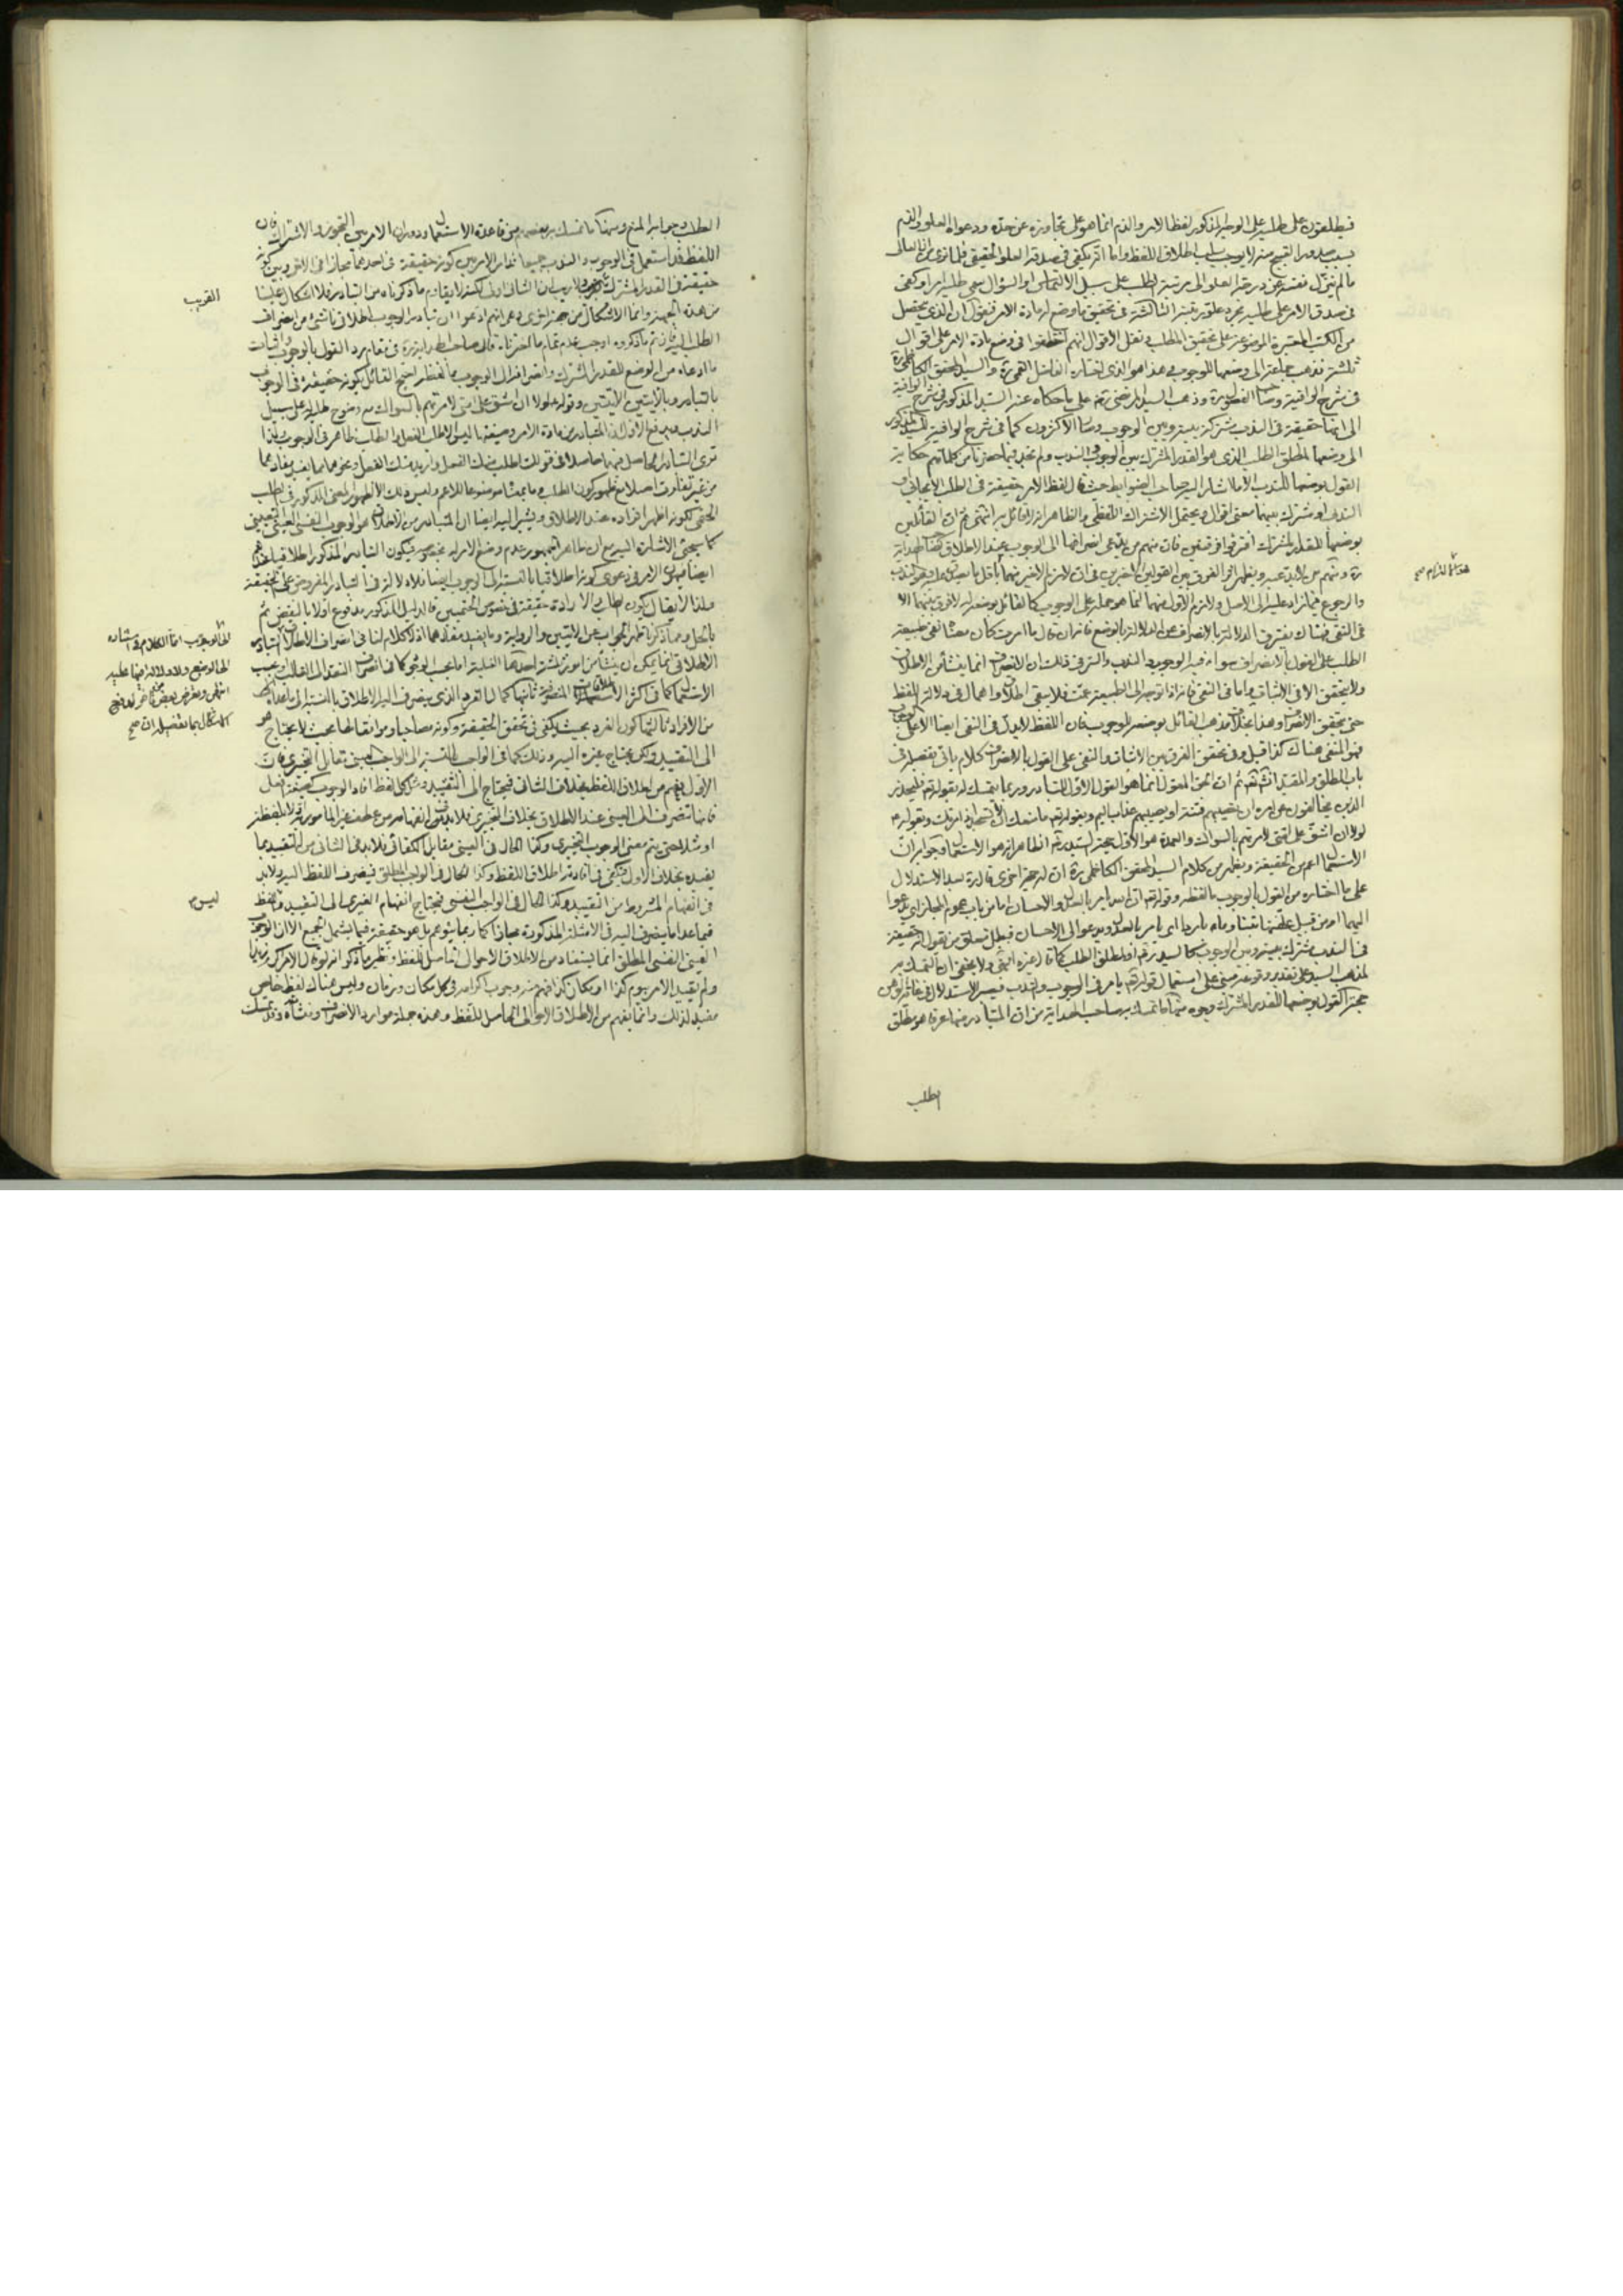 فيطلقون على طلبه على الوجه المذكور لفظ الامر والذم انما هو على تجاوزه عن حده ودعواه العلو والذم
بسبب صدور القبيح منه لا يوجب سلب اطلاق اللفظ واما انه يكفي في صدقه العلو الحقيقي فلما نرى من ان العالى
ما لم ينزل نفسه عن درجة العلو الى مرتبة الطلب على سبيل الالتماس او السؤال سمى طلبه امرا وكفى
فى صدق الامر على طلبه مجرد علو رتبته الثالثة فى تحقيق ما وضع له مادة الامر فنقول ان الذى يحصل
من الكتب المعتبرة الموضوعة على تحقيق المطلب ونقل الاقوال انهم اختلفوا فى وضع مادة الامر على اقوال
ثلثة فذهب جماعة الى وضعها للوجوب وهذا هو الذى اختاره الفاضل القمى ره والسيد المحقق الكاظمى ره
فى شرح الوافية وصاحب الفصول ره وذهب السيد المرتضى رض على ما حكاه عنه السيد المذكور فى شرح الوافية
الى انها حقيقة فى الندب مشتركة بينه وبين الوجوب وصار الاكثرون كما فى شرح الوافية للسيد المذكور
الى وضعها لمطلق الطلب الذى هو القدر المشترك بين الوجوب والندب ولم نجد فيما حضرنا من كلماتهم حكاية
القول بوضعها للندب الا ما اشار اليه صاحب الضوابط حيث قال لفظ الامر حقيقة فى الطلب الايجابى او
الندبى او مشترك بينهما معنى اقوال ويحتمل الاشتراك اللفظى والظاهر انه لا قائل به انتهى ثم ان القائلين
بوضعها للقدر المشترك افترقوا فرقتين فان منهم من يدعى انصرافها الى الوجوب عند الاطلاق كصاحب الهداية
ره ومنهم من لا يدعيه ويظهر اثر الفرق بين القولين الاخيرين فى ان لازم الاخير منهما الاخذ باقل ما تعين ارادته وهو الندب
والرجوع فيما زاد عليه الى الاصل ولازم الاول منهما انما هو حمله على الوجوب كالقائل بوضعه له لا فرق بينهما الا
فى النفى فهناك يفترق الدلالة بالانصراف عن الدلالة بالوضع فانه ان قال ما امرت كان معناه نفى طبيعة
الطلب على القول بالانصراف سواء فيه الوجوب والندب والسر فى ذلك ان الانصراف انما ينشأ من الاطلاق
ولا يتحقق الا فى الاثبات واما فى النفى فانه اذا توجه الى الطبيعة عمت فلا يبقى اطلاق واهمال فى دلالة اللفظ
حتى يتحقق الانصراف وهذا بخلاف مذهب القائل بوضعه للوجوب فان اللفظ لا يدل فى النفى ايضا الا على الوجوب
فهو المنفى هناك كذا قيل وفى تحقيق الفرق بين الاثبات والنفى على القول بالانصراف كلام ياتى تفصيله فى
باب المطلق والمقيد انشاء الله تعالى ثم ان الحق المعول انما هو القول الاول للتبادر وربما يتمسك له بقوله تعالى فليحذر
الذين يخالفون عن امره ان تصيبهم فتنة او يصيبهم عذاب اليم وبقوله تعالى ما منعك الا تسجد اذ امرتك وبقوله ص
لولا ان اشق على امتى لامرتهم بالسواك والعمدة هو الاول حجة السيد ره انه الظاهر انه هو الاستعمال وجوابه ان
الاستعمال اعم من الحقيقة ويظهر من كلام السيد المحقق الكاظمى ره ان له حجة اخرى قال ره بعد الاستدلال
على ما اختاره من القول بالوجوب بالفظه وقوله تعالى ان الله يامر بالعدل والاحسان اما من باب عموم المجاز اى يدعوا
اليهما او من قبيل علفتها تبنا وماء باردا اى يامر بالعدل ويدعو الى الاحسان فبطل تعلق من يقول انه حقيقة
فى الندب مشترك بينه وبين الوجوب كالسيد ره او لمطلق الطلب كما قاله غيره انتهى ولا يخفى ان التمسك به
لمذهب السيد على تقدير وقوعه مبنى على استعمال قوله تعالى يامر فى الوجوب والندب فيصير الاستدلال فى غاية الوهن
حجة القول بوضعها للقدر المشترك وجوه منها ما تمسك به صاحب الهداية من ان المتبادر منها عرفا هو مطلق
الطلب
هو عدم الالزام صح
الطلب وجوابه المنع ومنها ما تمسك به بعضهم من قاعدة الاستعمال ودوران الامر بين التجوز والاشتراك فان
اللفظ قد استعمل فى الوجوب والندب جميعا فدار الامر بين كونه حقيقة فى احدهما مجازا فى الاخر وبين كونه
حقيقة فى القدر المشترك بينهما ولا ريب ان الثانى اولى لكنه لا يقاوم ما ذكرناه من التبادر فلا اشكال علينا
من هذه الجهة وانما الاشكال من جهة اخرى وهى انهم ادعوا ان تبادر الوجوب اطلاقى ناشئ من انصراف
الطلب اليه فان تم ما ذكروه اوجب عدم تمام ما اخترناه قال صاحب الهداية ره فى مقام رد القول بالوجوب واثبات
ما ادعاه من الوضع للقدر المشترك وانصرافه الى الوجوب ما لفظه احتج القائل بكونه حقيقة فى الوجوب
بالتبادر وبالايتين الاتيتين وقوله ص لولا ان اشق على امتى لامرتهم بالسواك مع وضوح طلبه له على سبيل
الندب ويدفع الاول ان المتبادر من مادة الامر وصيغته ليس الا طلب الفعل والطلب ظاهر فى الوجوب ولذا
ترى التبادر الحاصل فيهما حاصلا فى قولك اطلب منك الفعل واريد منك الفعل ونحوهما مما يفيد مفادهما
من غير تفاوت اصلا مع ظهور كون الطلب وما بمعناه موضوعا للاعم وليس ذلك الا لظهور المعنى المذكور فى الطلب
الحتمى لكونه اظهر افراده عند الاطلاق ويشير اليه ايضا ان المتبادر من الاطلاق هو الوجوب النفسى العينى التعيينى
كما سيجئ الاشارة اليه مع ان ظاهر الجمهور عدم وضع الامر له بخصوصه فيكون التبادر المذكور اطلاقيا قطعا
فلذا لا يقال بكون الطلب او الارادة حقيقة فى خصوص الحتميين فالدليل المذكور مدفوع اولا بالنقض ثم
بالحل ومما ذكرنا ظهر الجواب عن الايتين والرواية وما يفيد مفادهما اذ لا كلام لنا فى انصراف الاطلاق
القريب
لها الوجوب انما الكلام فى استناده
الى الوضع ولا دلالة فيها عليه
انتهى
ليس م
الاستعمال كما فى اكثر الاطلاقات المنصرفة ثانيها كمال الفرد الذى ينصرف اليه الاطلاق بالنسبة الى ما عداه
من الافراد ثالثها كون الفرد بحيث يكفى فى تحقق الحقيقة وكونه مصاحبا وموافقا لها بحيث لا يحتاج هو
الى التقييد ولكن يحتاج غيره اليه وذلك كما فى الواجب بالنسبة الى الواجب العينى مقابل التخييرى فان
الاول يفهم من اطلاق اللفظ بخلاف الثانى فيحتاج الى التقييد ومثله كل لفظ افاد الوجوب كصيغة افعل
فانها تنصرف الى العينى عند الاطلاق بخلاف التخييرى فلا بد فى انفهامه من عطف غير المامور به بلفظة
او مثلا حتى يتم معنى الوجوب التخييرى وكذا الحال فى العينى مقابل الكفائى فلا بد فى الثانى من التقييد بما
يفيده بخلاف الاول فيكفى فى افادته اطلاق اللفظ وكذا الحال فى الواجب المطلق فينصرف اللفظ اليه ولا بد
فى انفهام المشروط من التقييد وكذا الحال فى الواجب النفسى فيحتاج انفهام الغيرى الى التقييد واللفظ
فيما عدا ما ينصرف اليه فى الامثلة المذكورة مجازا كما ربما يتوهم بل هو حقيقة فيما يشمل الجميع الا ان الوجوب
العينى النفسى المطلق انما يستفاد من الاطلاق الاحوالى الحاصل للفظ ونظير ما ذكر انه لو قال الامر اكرم زيدا
ولم يقيد الامر بيوم كذا او بمكان كذا فهم منه وجوب اكرامه فى كل مكان وزمان وليس هناك لفظ خاص
مفيد لذلك وانما يفهم من الاطلاق الاحوالى الحاصل للفظ وهذه جملة موارد الانصراف ومنشأه وقد تمسك